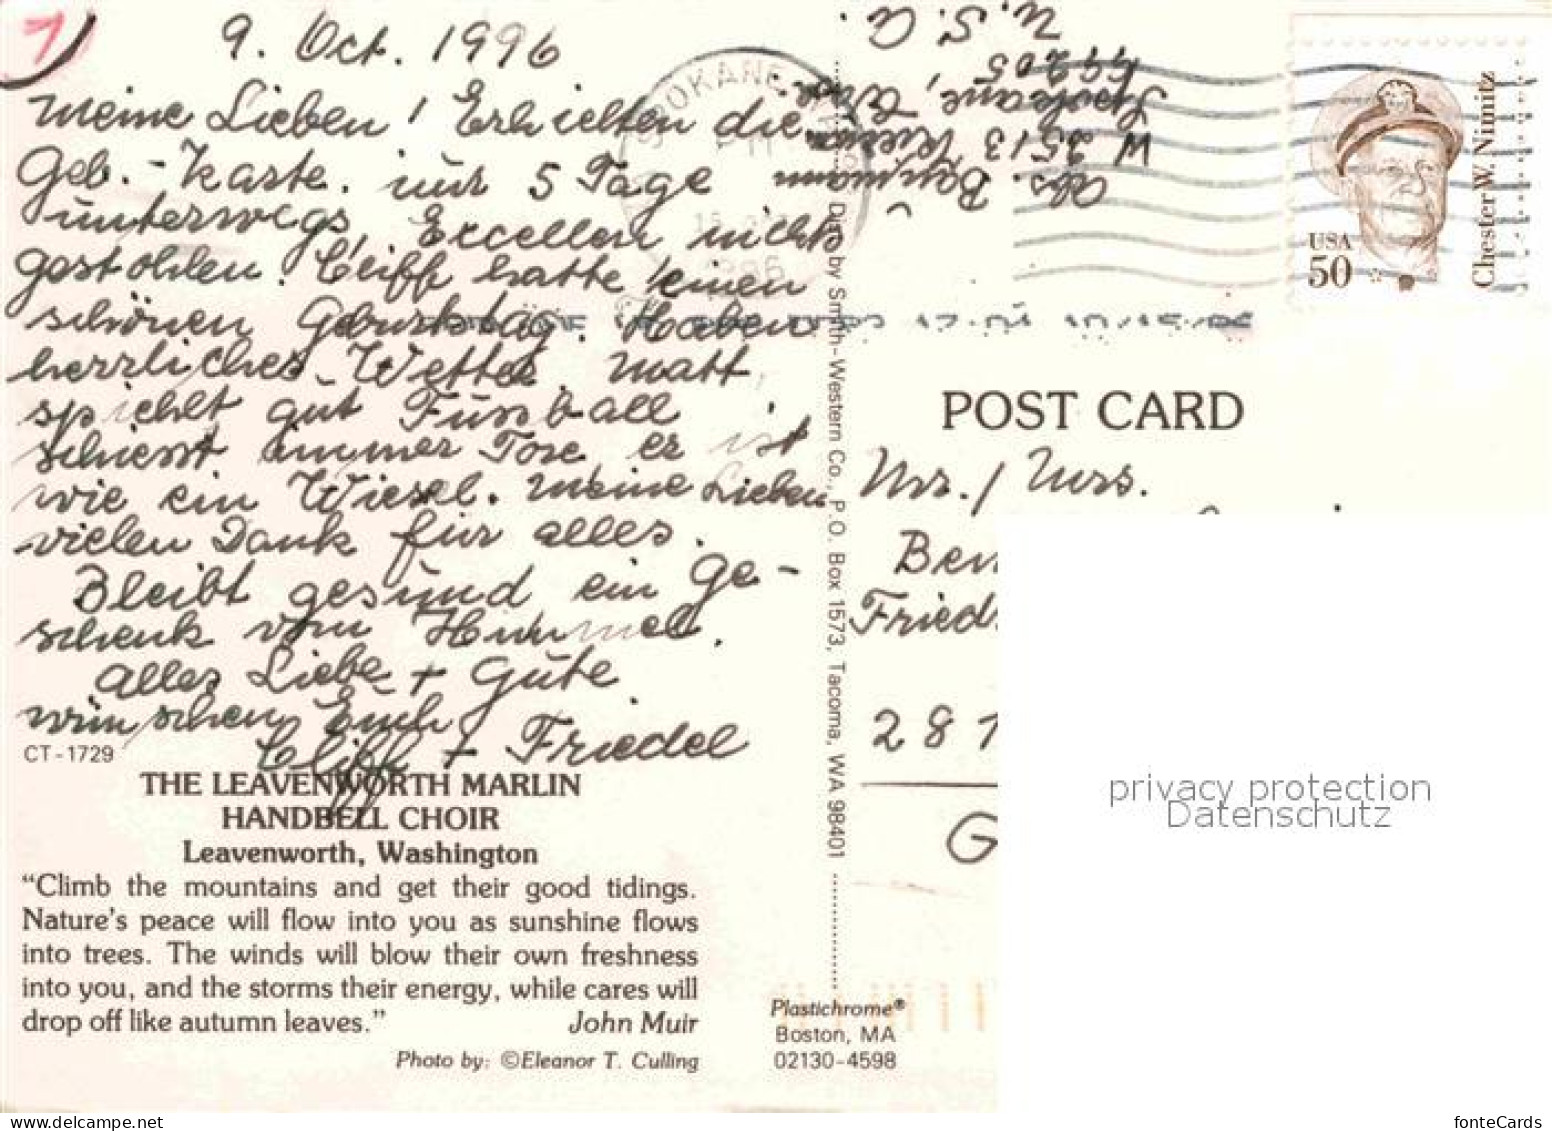 9. Oct. 1996
Meine Lieben! Erhielten die
Geb.-Karte. nur 5 Tage
unterwegs, Excellent nichts
gestohlen. Cliff hatte einen
schönen Geburtstag. Haben
herrliches Wetter. Matt
spiehlt gut Fussball
schiesst immer Tore, er ist
wie ein Wiesel. Meine Lieben
vielen Dank für alles.
Bleibt gesund ein Ge-
schenk vom Himmel.
Alles Liebe + Gute
wünschen Euch
Cliff + Friedel
CT-1729
THE LEAVENWORTH MARLIN
HANDBELL CHOIR
Leavenworth, Washington
“Climb the mountains and get their good tidings.
Nature's peace will flow into you as sunshine flows
into trees. The winds will blow their own freshness
into you, and the storms their energy, while cares will
drop off like autumn leaves.”
John Muir
Photo by: ©Eleanor T. Culling
Dist. by Smith-Western Co., P.O. Box 1573, Tacoma, WA 98401
Plastichrome®
Boston, MA
02130-4598
Abs.
W 3513
Spokane,
99205
U.S.A
SPOKANE
1996
USA
50
Chester W. Nimitz
POST CARD
Mr. / Mrs.
Ben
Fried
281
G
privacy protection
Datenschutz
fonteCards